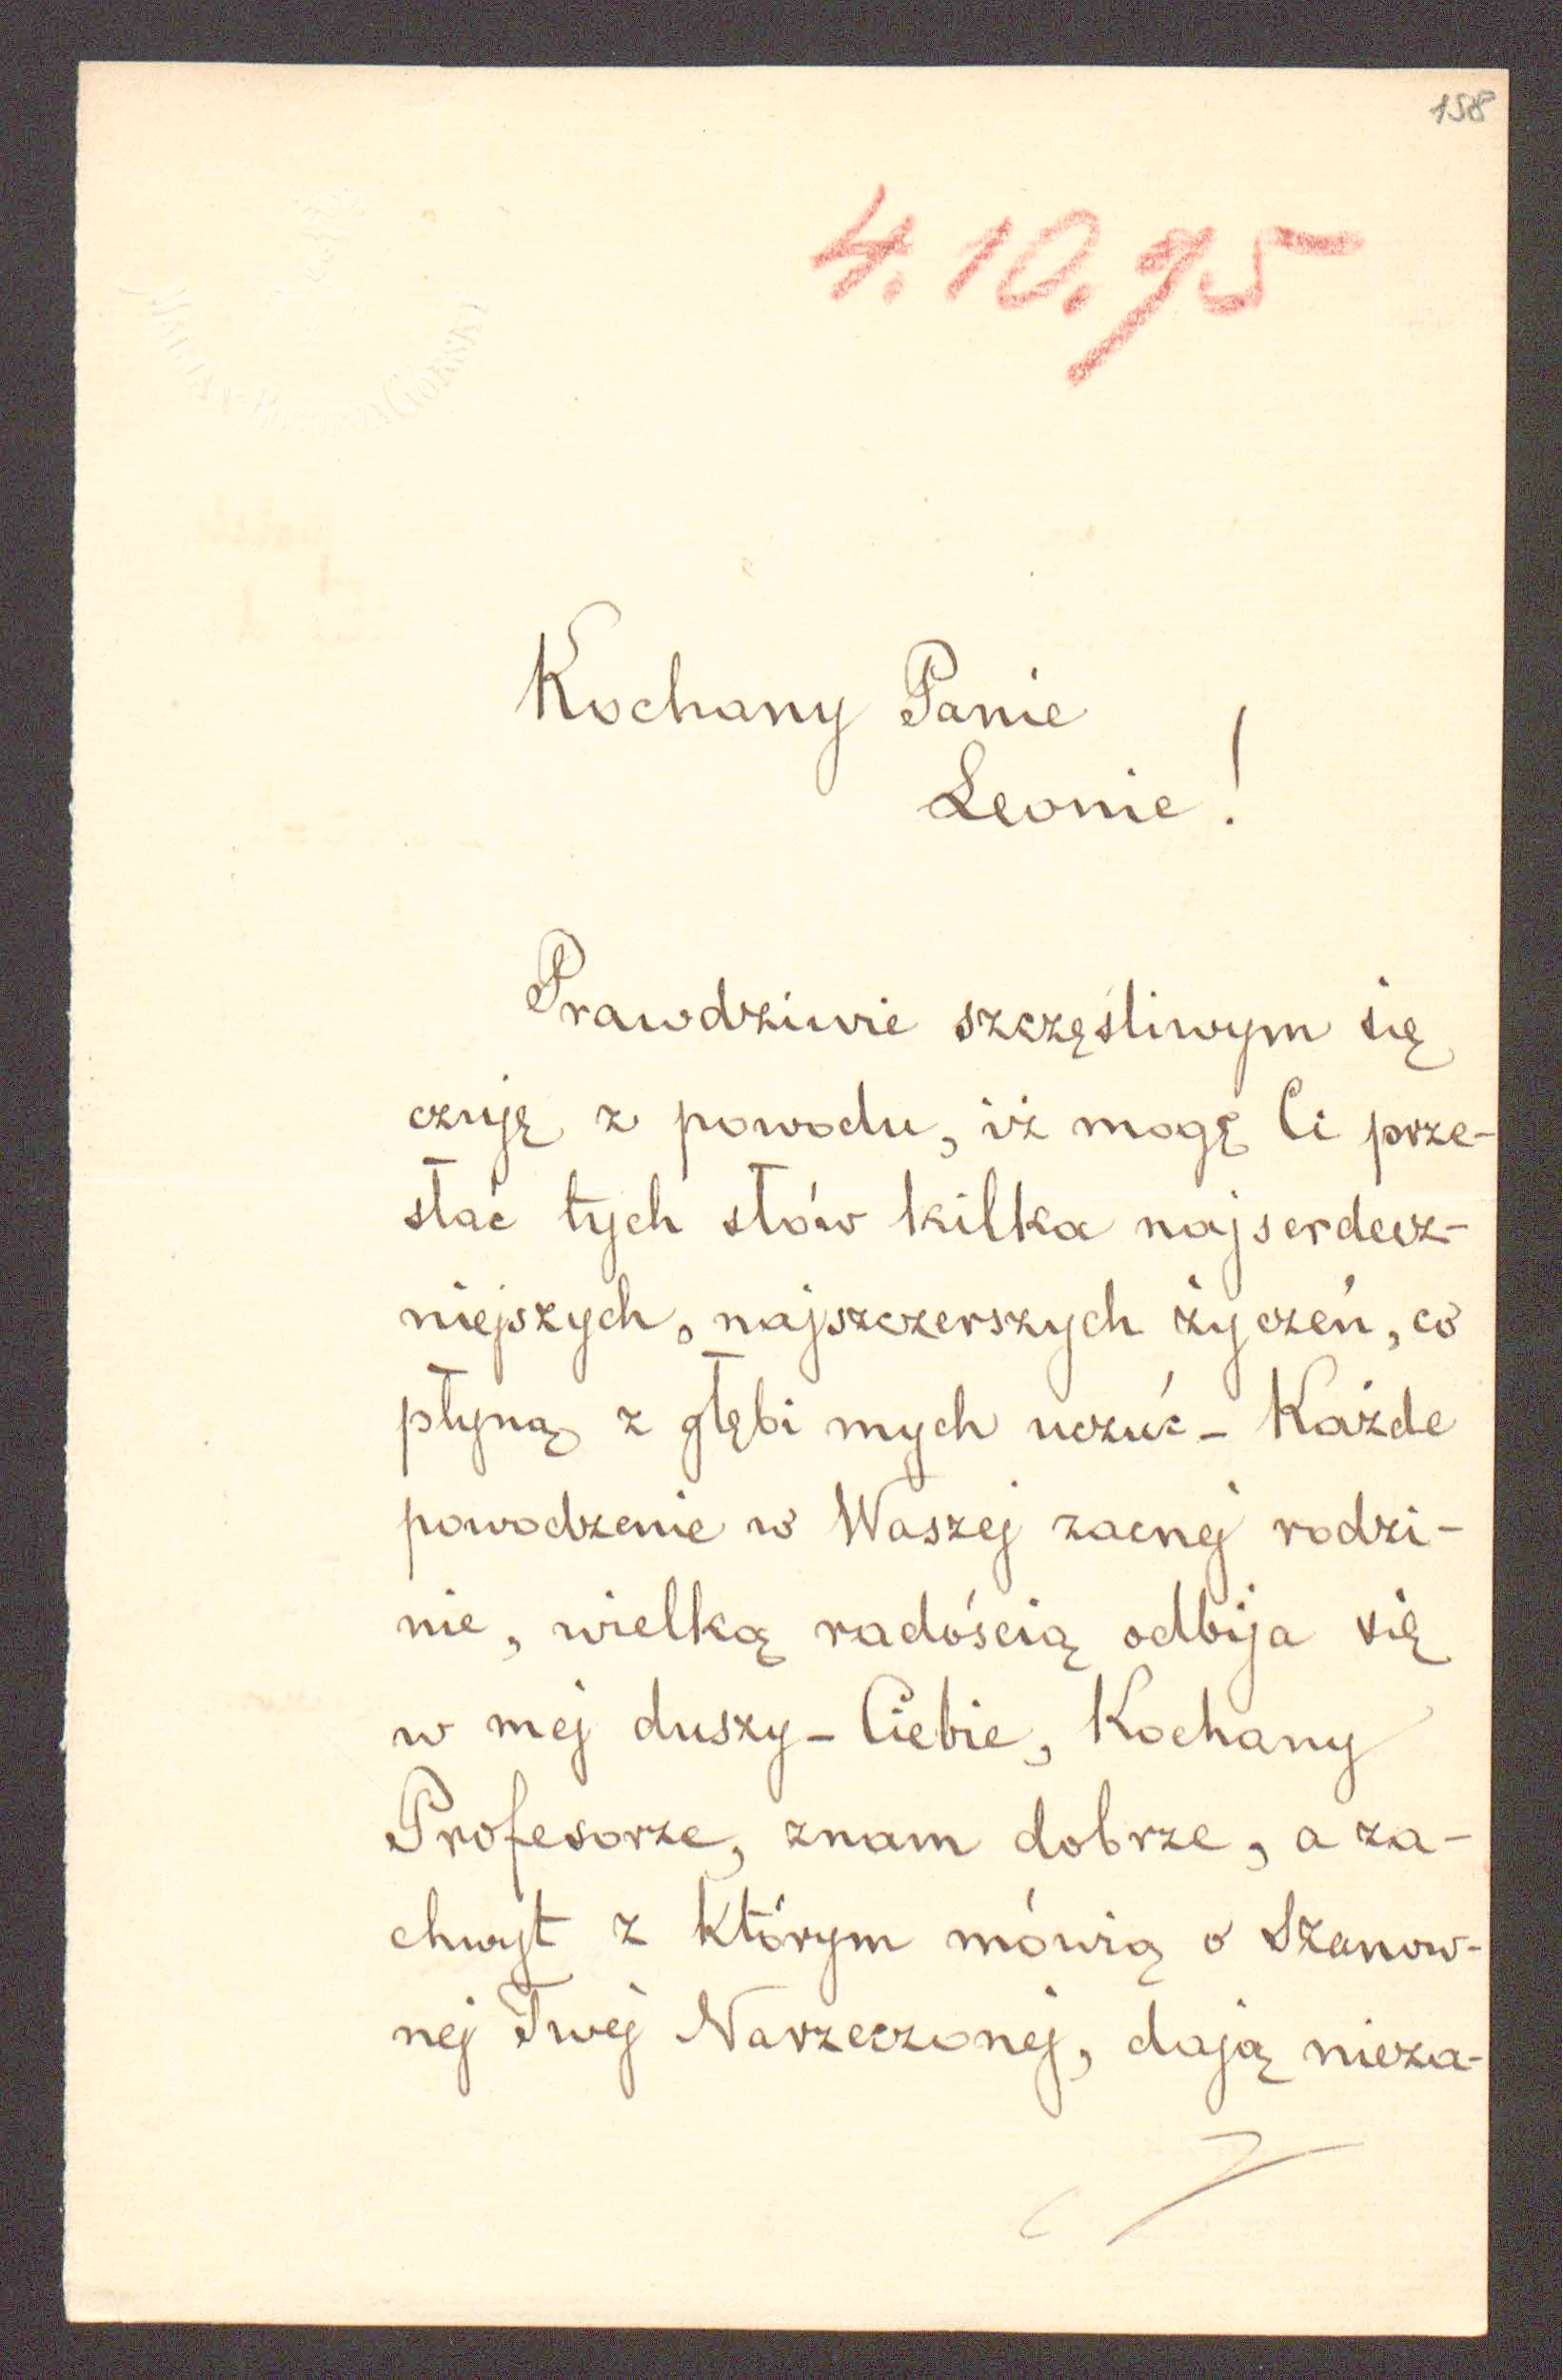 158
4.10.95
Kochany Panie
Leonie!
Prawdziwie szczęśliwym się
czuję z powodu, iż mogę Ci prze-
słać tych słów kilka najserdecz-
niejszych, najszczerszych życzeń, co
płyną z głębi mych uczuć - Każde
powodzenie w Waszej zacnej rodzi-
nie, wielką radością odbija się
w mej duszy - Ciebie, Kochany
Profesorze, znam dobrze, a za-
chwyt z którym mówią o Szanow-
nej Twej Narzeczonej, dają nieza-